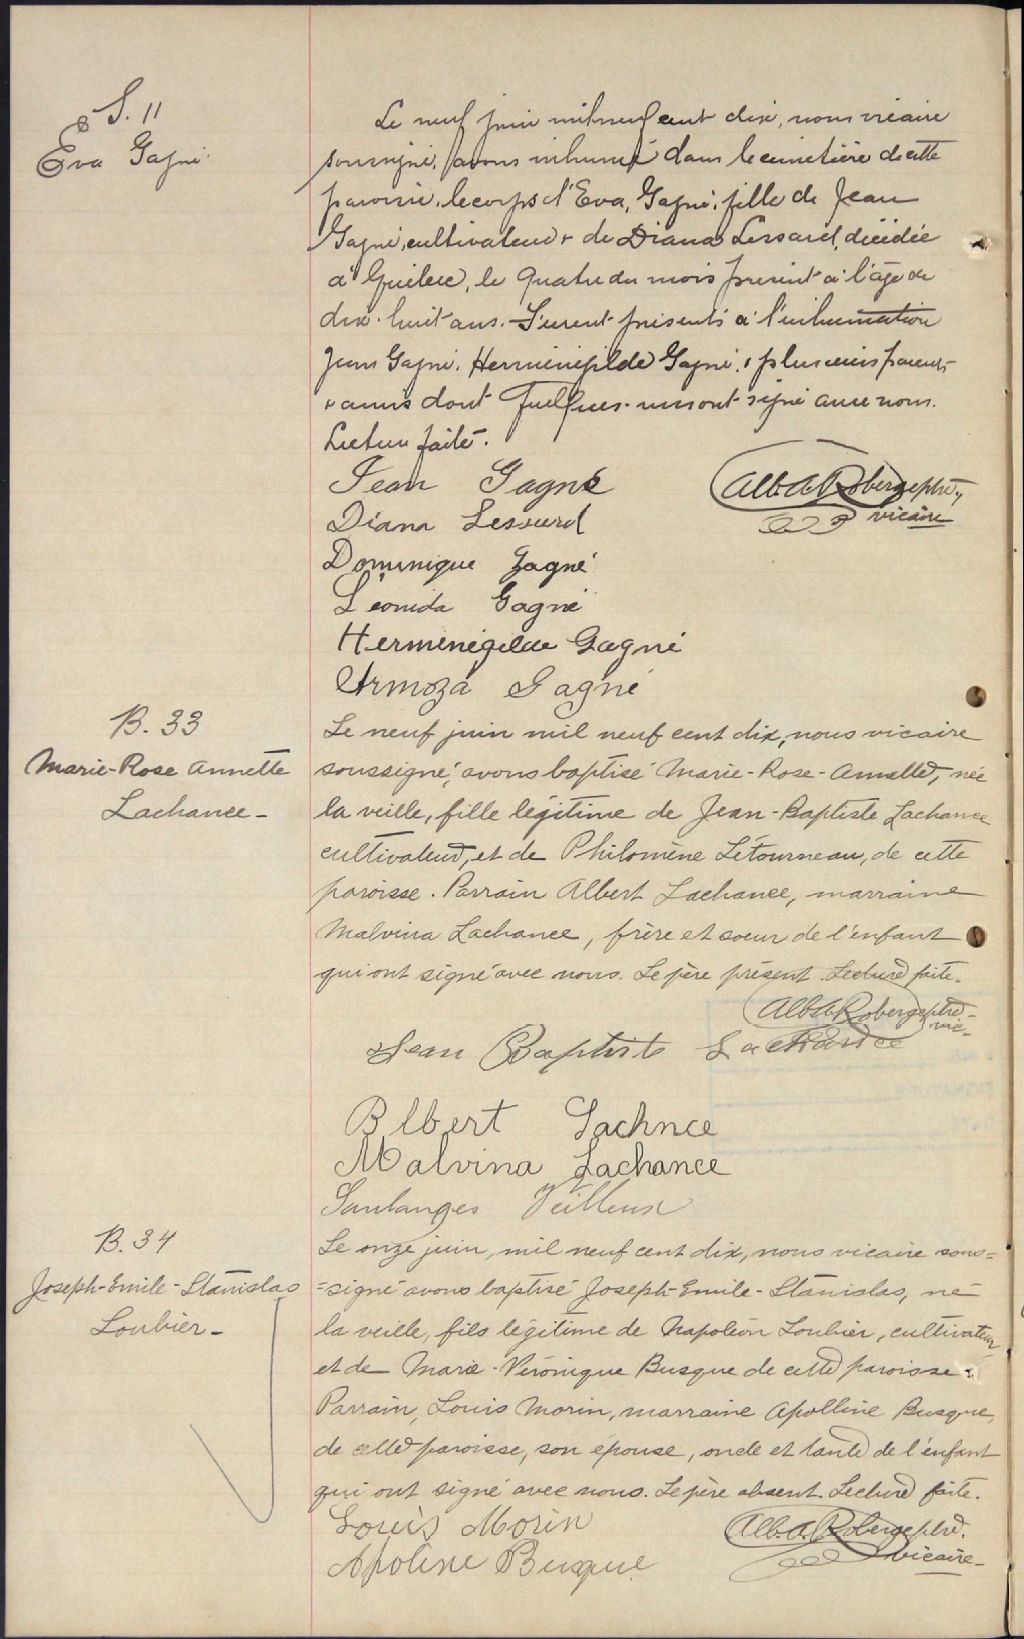 S. 11
Eva Gagné
Le neuf juin mil neuf cent dix, nous vicaire
soussigné, avons inhumé dans le cimetière de cette
paroisse, le corps d'Eva, Gagné, fille de Jean
Gagné, cultivateur & de Diana Lessard, décédée
à Québec, le quatre du mois présent à l'âge de
dix-huit ans. Furent présents à l'inhumation
Jean Gagné, Herménégilde Gagné, & plusieurs parents
& amis dont quelques-uns ont signé avec nous.
Lecture faite.
Jean Gagné
Alb. A. Roberge ptre,
vicaire
Diana Lessard
Dominique Gagné
Léonida Gagné
Herménégilde Gagné
Armoza Gagné
B. 33
Marie-Rose Annette
Lachance-
Le neuf juin mil neuf cent dix, nous vicaire
soussigné, avons baptisé Marie-Rose-Annette, née
la veille, fille légitime de Jean-Baptiste Lachance
cultivateur, et de Philomène Létourneau, de cette
paroisse. Parrain Albert Lachance, marraine
Malvina Lachance, frère et soeur de l'enfant
qui ont signé avec nous. Le père présent. Lecture faite.
Alb. A. Roberge ptre-
vic-
Jean Baptiste Lachance
Albert Lachnce
Malvina Lachance
Soulanges Veilleux
B. 34
Joseph-Emile-Stanislas
Loubier-
Le onze juin, mil neuf cent dix, nous vicaire sous=
=signé avons baptisé Joseph-Emile-Stanislas, né
la veille, fils légitime de Napoléon Loubier, cultivateur
et de Marie-Véronique Busque de cette paroisse.
Parrain, Louis Morin, marraine Apolline Busque,
de cette paroisse, son épouse, oncle et tante de l'enfant
qui ont signé avec nous. Le père absent. Lecture faite.
Louis Morin
Alb. A. Roberge ptre.
vicaire-
Apoline Busque